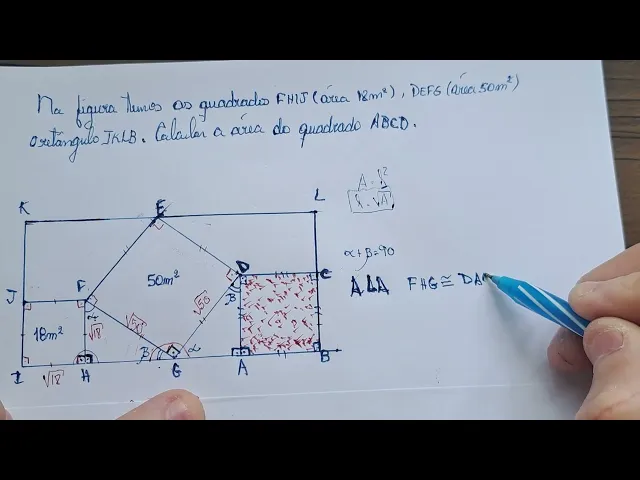 Na figura temos os quadrados FHIJ (área 18m²), DEFG (área 50m²)
e retângulo IKLB. Calcular a área do quadrado ABCD.
K E L
A = l²
l = √A
α + β = 90
ALA FHG ≅ DAG
J F 50m² D C
18m² √18 √50 √50 β
α β α
I √18 H G A B